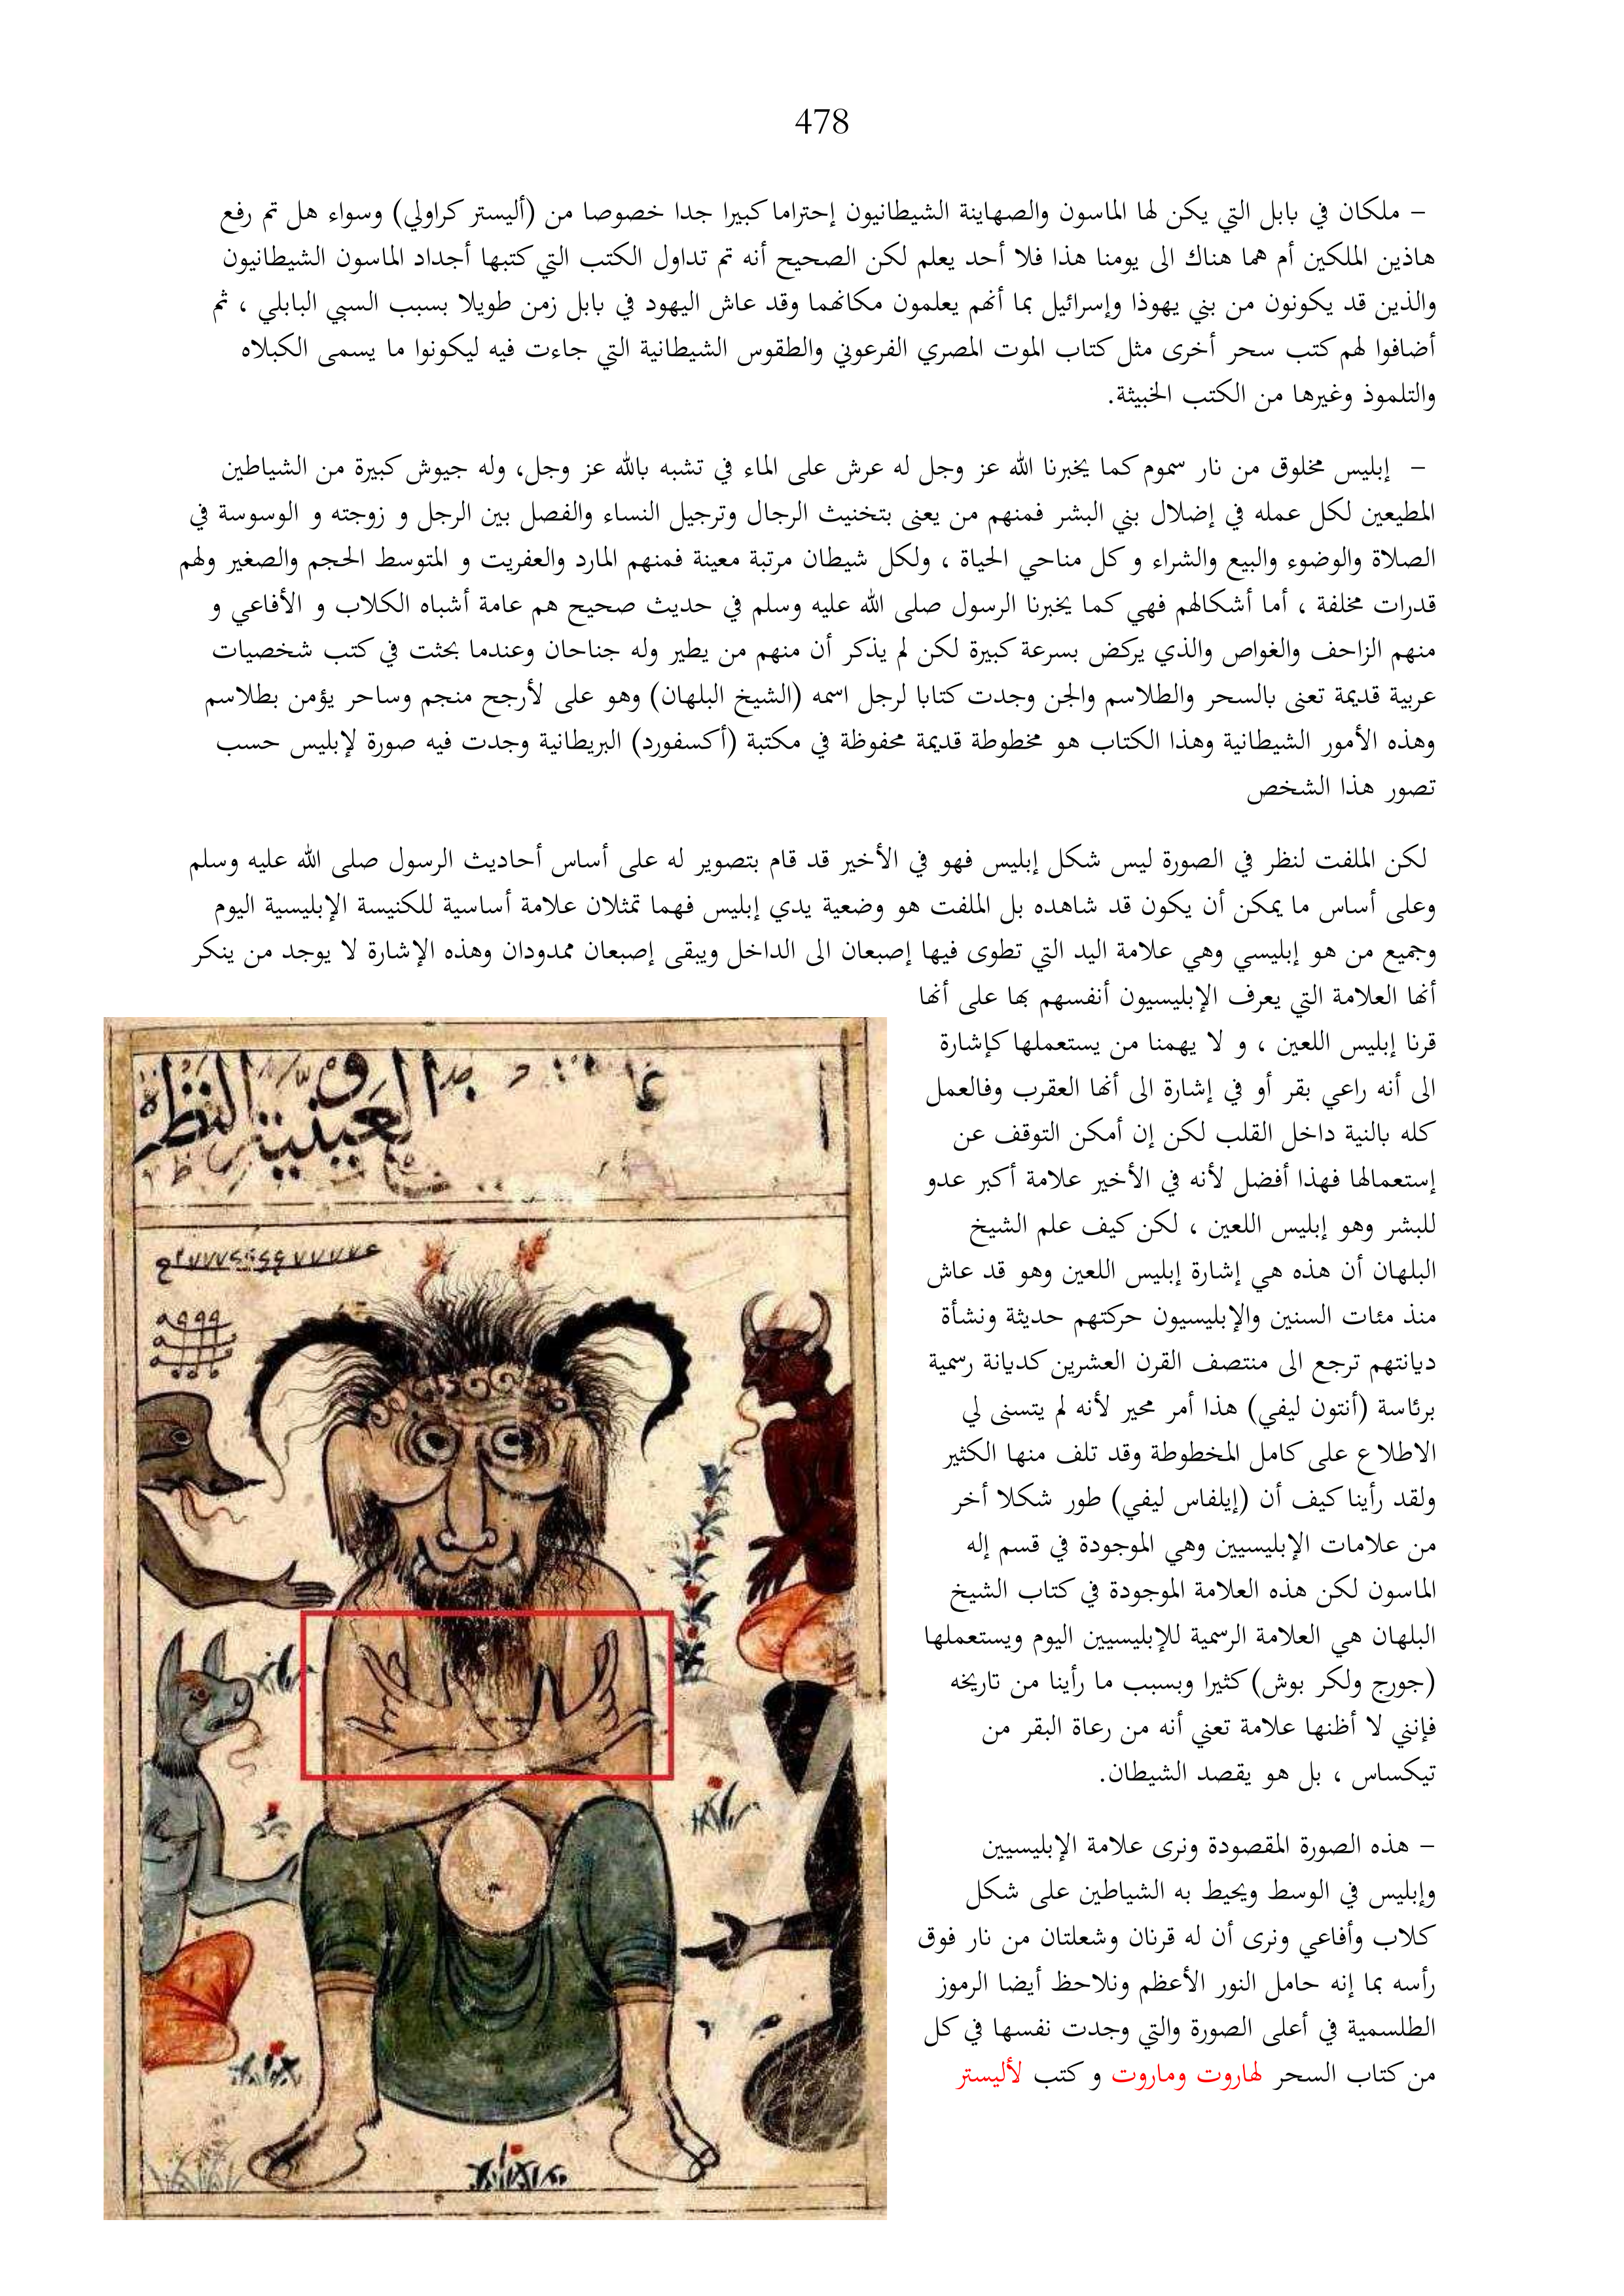 478
– ملكان في بابل التي يكن لها الماسون والصهاينة الشيطانيون إحتراما كبيرا جدا خصوصا من (أليستر كراولي) وسواء هل تم رفع
هاذين الملكين أم هما هناك الى يومنا هذا فلا أحد يعلم لكن الصحيح أنه تم تداول الكتب التي كتبها أجداد الماسون الشيطانيون
والذين قد يكونون من بني يهوذا وإسرائيل بما أنهم يعلمون مكانهما وقد عاش اليهود في بابل زمن طويلا بسبب السبي البابلي ، ثم
أضافوا لهم كتب سحر أخرى مثل كتاب الموت المصري الفرعوني والطقوس الشيطانية التي جاءت فيه ليكونوا ما يسمى الكبلاه
والتلموذ وغيرها من الكتب الخبيثة.
– إبليس مخلوق من نار سموم كما يخبرنا الله عز وجل له عرش على الماء في تشبه بالله عز وجل، وله جيوش كبيرة من الشياطين
المطيعين لكل عمله في إضلال بني البشر فمنهم من يعنى بتخنيث الرجال وترجيل النساء والفصل بين الرجل و زوجته و الوسوسة في
الصلاة والوضوء والبيع والشراء و كل مناحي الحياة ، ولكل شيطان مرتبة معينة فمنهم المارد والعفريت و المتوسط الحجم والصغير ولهم
قدرات مخلفة ، أما أشكالهم فهي كما يخبرنا الرسول صلى الله عليه وسلم في حديث صحيح هم عامة أشباه الكلاب و الأفاعي و
منهم الزاحف والغواص والذي يركض بسرعة كبيرة لكن لم يذكر أن منهم من يطير وله جناحان وعندما بحثت في كتب شخصيات
عربية قديمة تعنى بالسحر والطلاسم والجن وجدت كتابا لرجل اسمه (الشيخ البلهان) وهو على لأرجح منجم وساحر يؤمن بطلاسم
وهذه الأمور الشيطانية وهذا الكتاب هو مخطوطة قديمة محفوظة في مكتبة (أكسفورد) البريطانية وجدت فيه صورة لإبليس حسب
تصور هذا الشخص
لكن الملفت لنظر في الصورة ليس شكل إبليس فهو في الأخير قد قام بتصوير له على أساس أحاديث الرسول صلى الله عليه وسلم
وعلى أساس ما يمكن أن يكون قد شاهده بل الملفت هو وضعية يدي إبليس فهما تمثلان علامة أساسية للكنيسة الإبليسية اليوم
وجميع من هو إبليسي وهي علامة اليد التي تطوى فيها إصبعان الى الداخل ويبقى إصبعان ممدودان وهذه الإشارة لا يوجد من ينكر
أنها العلامة التي يعرف الإبليسيون أنفسهم بها على أنها
قرنا إبليس اللعين ، و لا يهمنا من يستعملها كإشارة
الى أنه راعي بقر أو في إشارة الى أنها العقرب وفالعمل
كله بالنية داخل القلب لكن إن أمكن التوقف عن
إستعمالها فهذا أفضل لأنه في الأخير علامة أكبر عدو
للبشر وهو إبليس اللعين ، لكن كيف علم الشيخ
البلهان أن هذه هي إشارة إبليس اللعين وهو قد عاش
منذ مئات السنين والإبليسيون حركتهم حديثة ونشأة
ديانتهم ترجع الى منتصف القرن العشرين كديانة رسمية
برئاسة (أنتون ليفي) هذا أمر محير لأنه لم يتسنى لي
الاطلاع على كامل المخطوطة وقد تلف منها الكثير
ولقد رأينا كيف أن (إيلفاس ليفي) طور شكلا أخر
من علامات الإبليسيين وهي الموجودة في قسم إله
الماسون لكن هذه العلامة الموجودة في كتاب الشيخ
البلهان هي العلامة الرسمية للإبليسيين اليوم ويستعملها
(جورج ولكر بوش) كثيرا وبسبب ما رأينا من تاريخه
فإنني لا أظنها علامة تعني أنه من رعاة البقر من
تيكساس ، بل هو يقصد الشيطان.
– هذه الصورة المقصودة ونرى علامة الإبليسيين
وإبليس في الوسط ويحيط به الشياطين على شكل
كلاب وأفاعي ونرى أن له قرنان وشعلتان من نار فوق
رأسه بما إنه حامل النور الأعظم ونلاحظ أيضا الرموز
الطلسمية في أعلى الصورة والتي وجدت نفسها في كل
من كتاب السحر لهاروت وماروت و كتب لأليستر